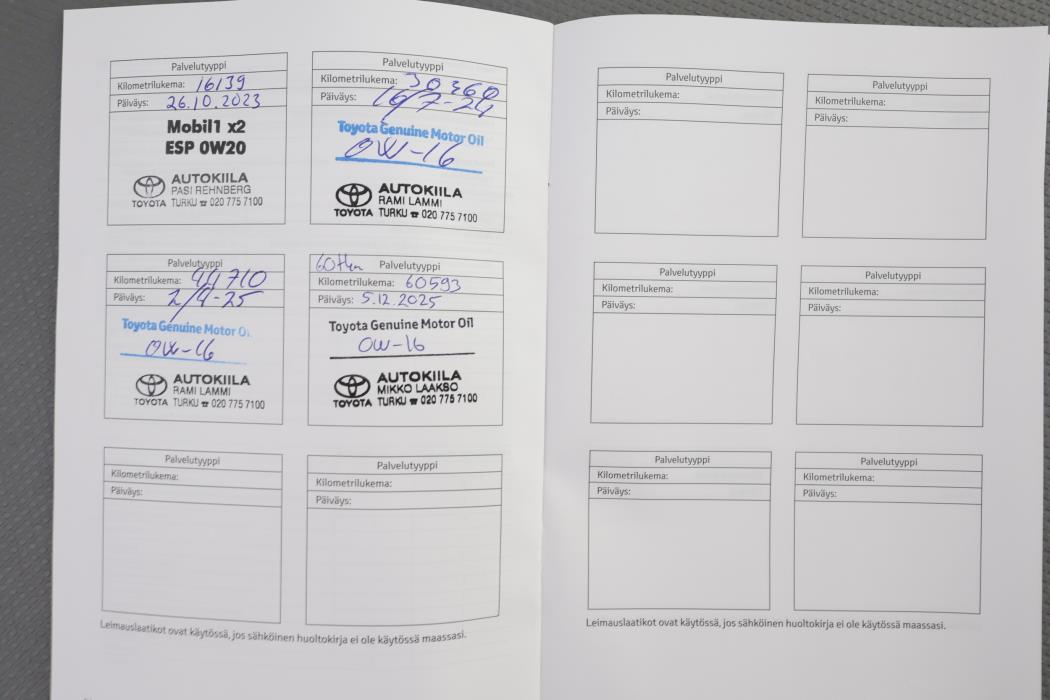 Palvelutyyppi
Kilometrilukema: 16139
Päiväys: 26.10.2023
Mobil1 x2
ESP 0W20
AUTOKIILA
PASI REHNBERG
TOYOTA TURKU ☎ 020 775 7100
Palvelutyyppi
Kilometrilukema: 30360
Päiväys: 16/7-24
Toyota Genuine Motor Oil
0W-16
AUTOKIILA
RAMI LAMMI
TOYOTA TURKU ☎ 020 775 7100
Palvelutyyppi
Kilometrilukema: 44710
Päiväys: 2/4-25
Toyota Genuine Motor O
0W-16
AUTOKIILA
RAMI LAMMI
TOYOTA TURKU ☎ 020 775 7100
60tkm Palvelutyyppi
Kilometrilukema: 60593
Päiväys: 5.12.2025
Toyota Genuine Motor Oil
0W-16
AUTOKIILA
MIKKO LAAKSO
TOYOTA TURKU ☎ 020 775 7100
Palvelutyyppi
Kilometrilukema:
Päiväys:
Palvelutyyppi
Kilometrilukema:
Päiväys:
Leimauslaatikot ovat käytössä, jos sähköinen huoltokirja ei ole käytössä maassasi.
Palvelutyyppi
Kilometrilukema:
Päiväys:
Palvelutyyppi
Kilometrilukema:
Päiväys:
Palvelutyyppi
Kilometrilukema:
Päiväys:
Palvelutyyppi
Kilometrilukema:
Päiväys:
Palvelutyyppi
Kilometrilukema:
Päiväys:
Palvelutyyppi
Kilometrilukema:
Päiväys:
Leimauslaatikot ovat käytössä, jos sähköinen huoltokirja ei ole käytössä maassasi.